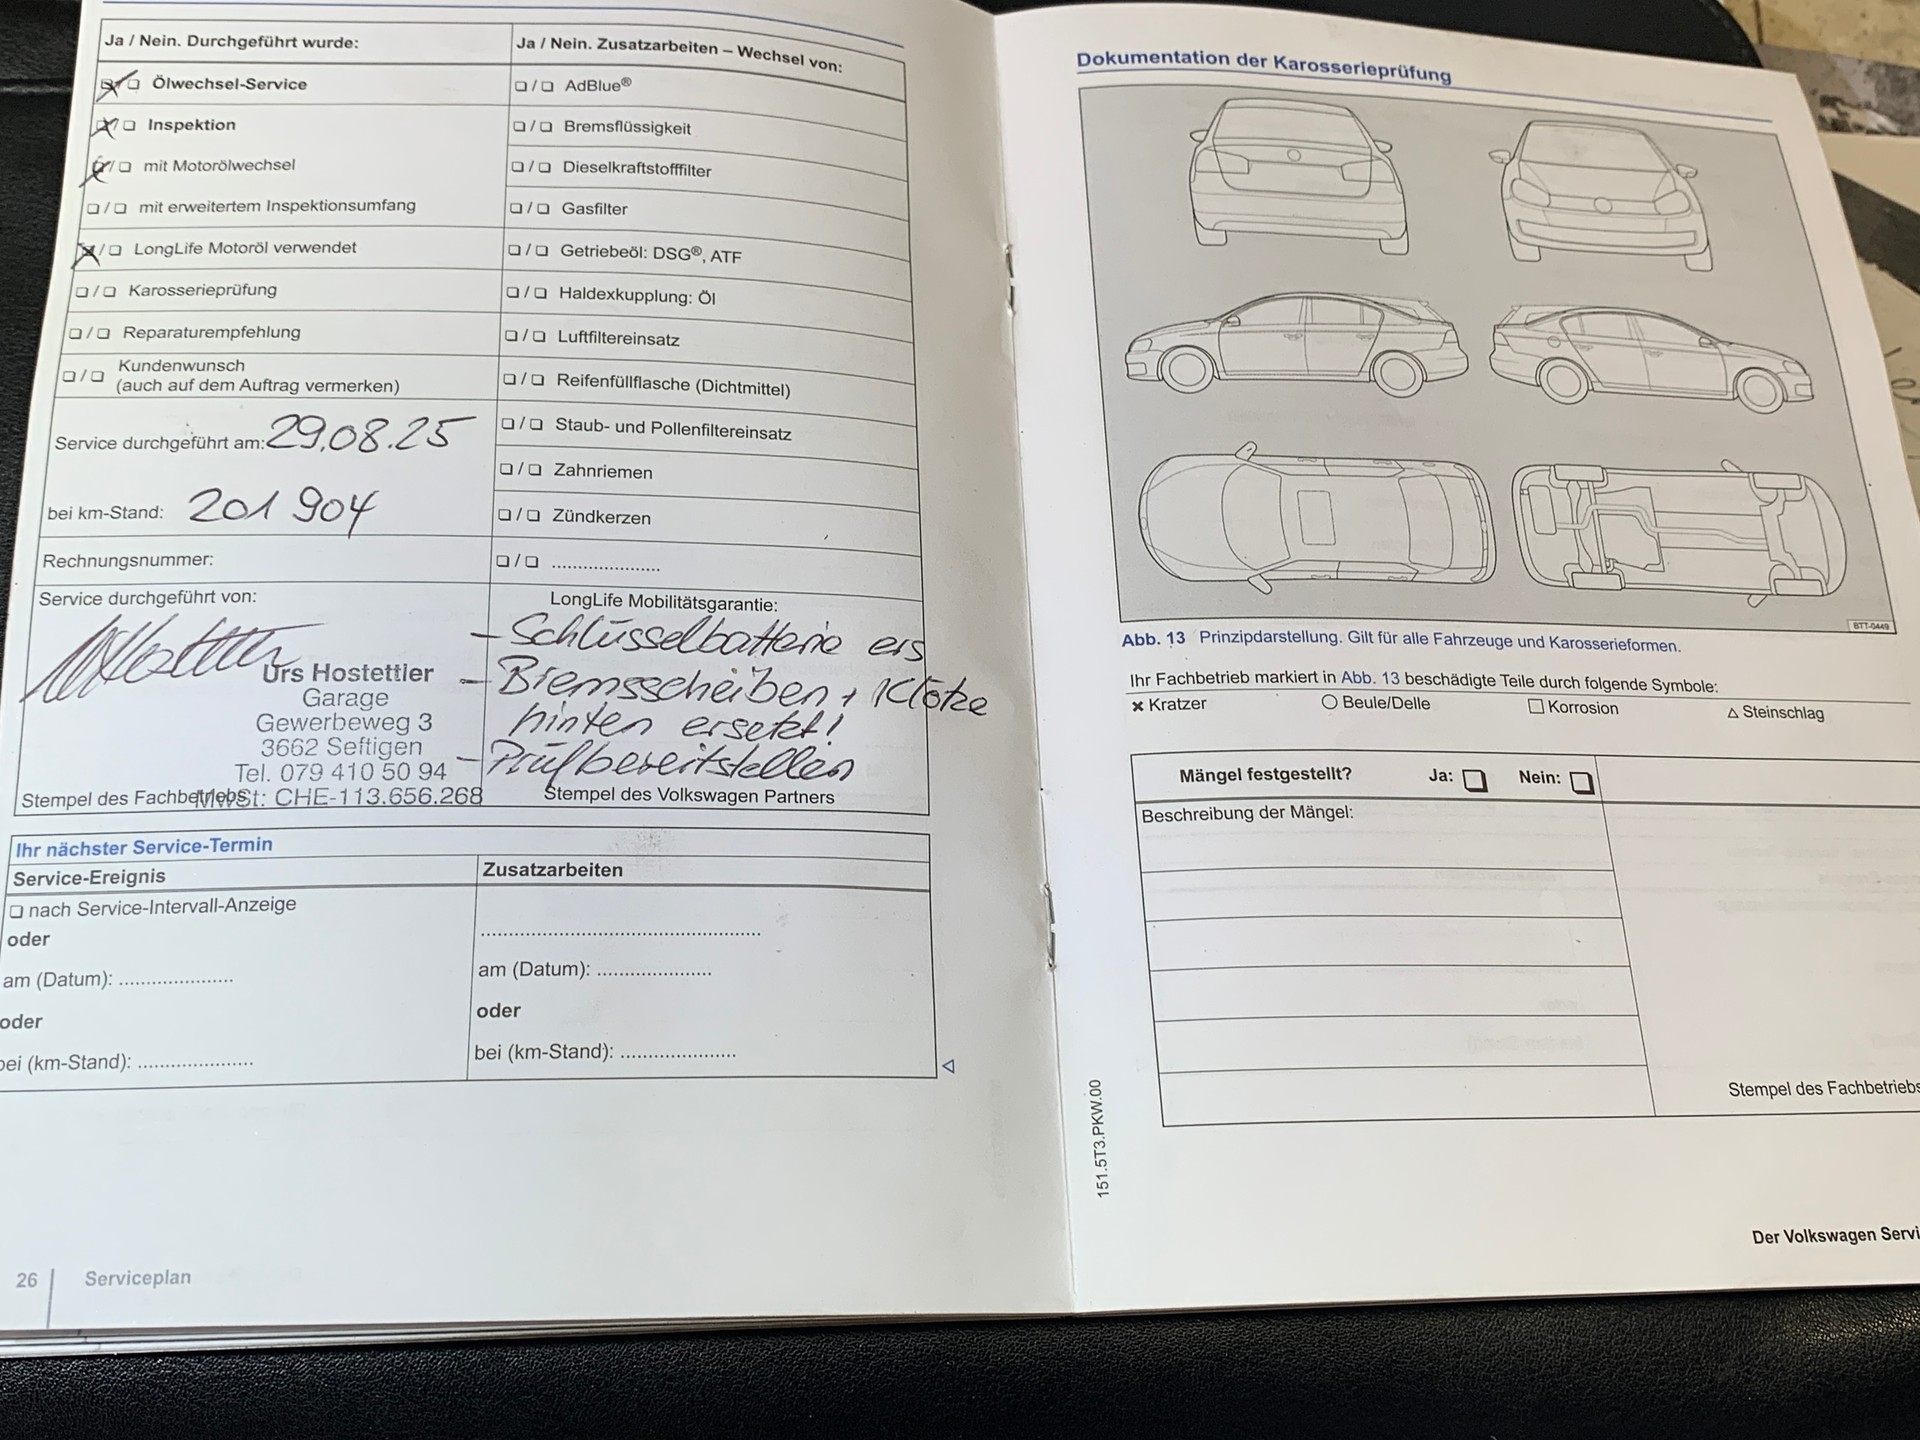 Ja / Nein. Durchgeführt wurde:
❏/❏ Ölwechsel-Service
❏/❏ Inspektion
❏/❏ mit Motorölwechsel
❏/❏ mit erweitertem Inspektionsumfang
❏/❏ LongLife Motoröl verwendet
❏/❏ Karosserieprüfung
❏/❏ Reparaturempfehlung
❏/❏ Kundenwunsch
(auch auf dem Auftrag vermerken)
Service durchgeführt am: 29.08.25
bei km-Stand: 201 904
Rechnungsnummer:
Service durchgeführt von:
Urs Hostettler
Garage
Gewerbeweg 3
3662 Seftigen
Tel. 079 410 50 94
MwSt: CHE-113.656.268
Stempel des Fachbetriebs
Ja / Nein. Zusatzarbeiten – Wechsel von:
❏/❏ AdBlue®
❏/❏ Bremsflüssigkeit
❏/❏ Dieselkraftstofffilter
❏/❏ Gasfilter
❏/❏ Getriebeöl: DSG®, ATF
❏/❏ Haldexkupplung: Öl
❏/❏ Luftfiltereinsatz
❏/❏ Reifenfüllflasche (Dichtmittel)
❏/❏ Staub- und Pollenfiltereinsatz
❏/❏ Zahnriemen
❏/❏ Zündkerzen
❏/❏ .....................
LongLife Mobilitätsgarantie:
- Schlüsselbatterie ers
- Bremsscheiben + Klötze
hinten ersetzt!
- Prüfbereitstellen
Stempel des Volkswagen Partners
Ihr nächster Service-Termin
Service-Ereignis
❏ nach Service-Intervall-Anzeige
oder
am (Datum): .....................
oder
bei (km-Stand): .....................
Zusatzarbeiten
...................................................
am (Datum): .....................
oder
bei (km-Stand): .....................
26 Serviceplan
Dokumentation der Karosserieprüfung
BTT-0449
Abb. 13 Prinzipdarstellung. Gilt für alle Fahrzeuge und Karosserieformen.
Ihr Fachbetrieb markiert in Abb. 13 beschädigte Teile durch folgende Symbole:
× Kratzer ○ Beule/Delle □ Korrosion △ Steinschlag
Mängel festgestellt? Ja: ❏ Nein: ❏
Beschreibung der Mängel:
Stempel des Fachbetriebs
151.5T3.PKW.00
Der Volkswagen Servi